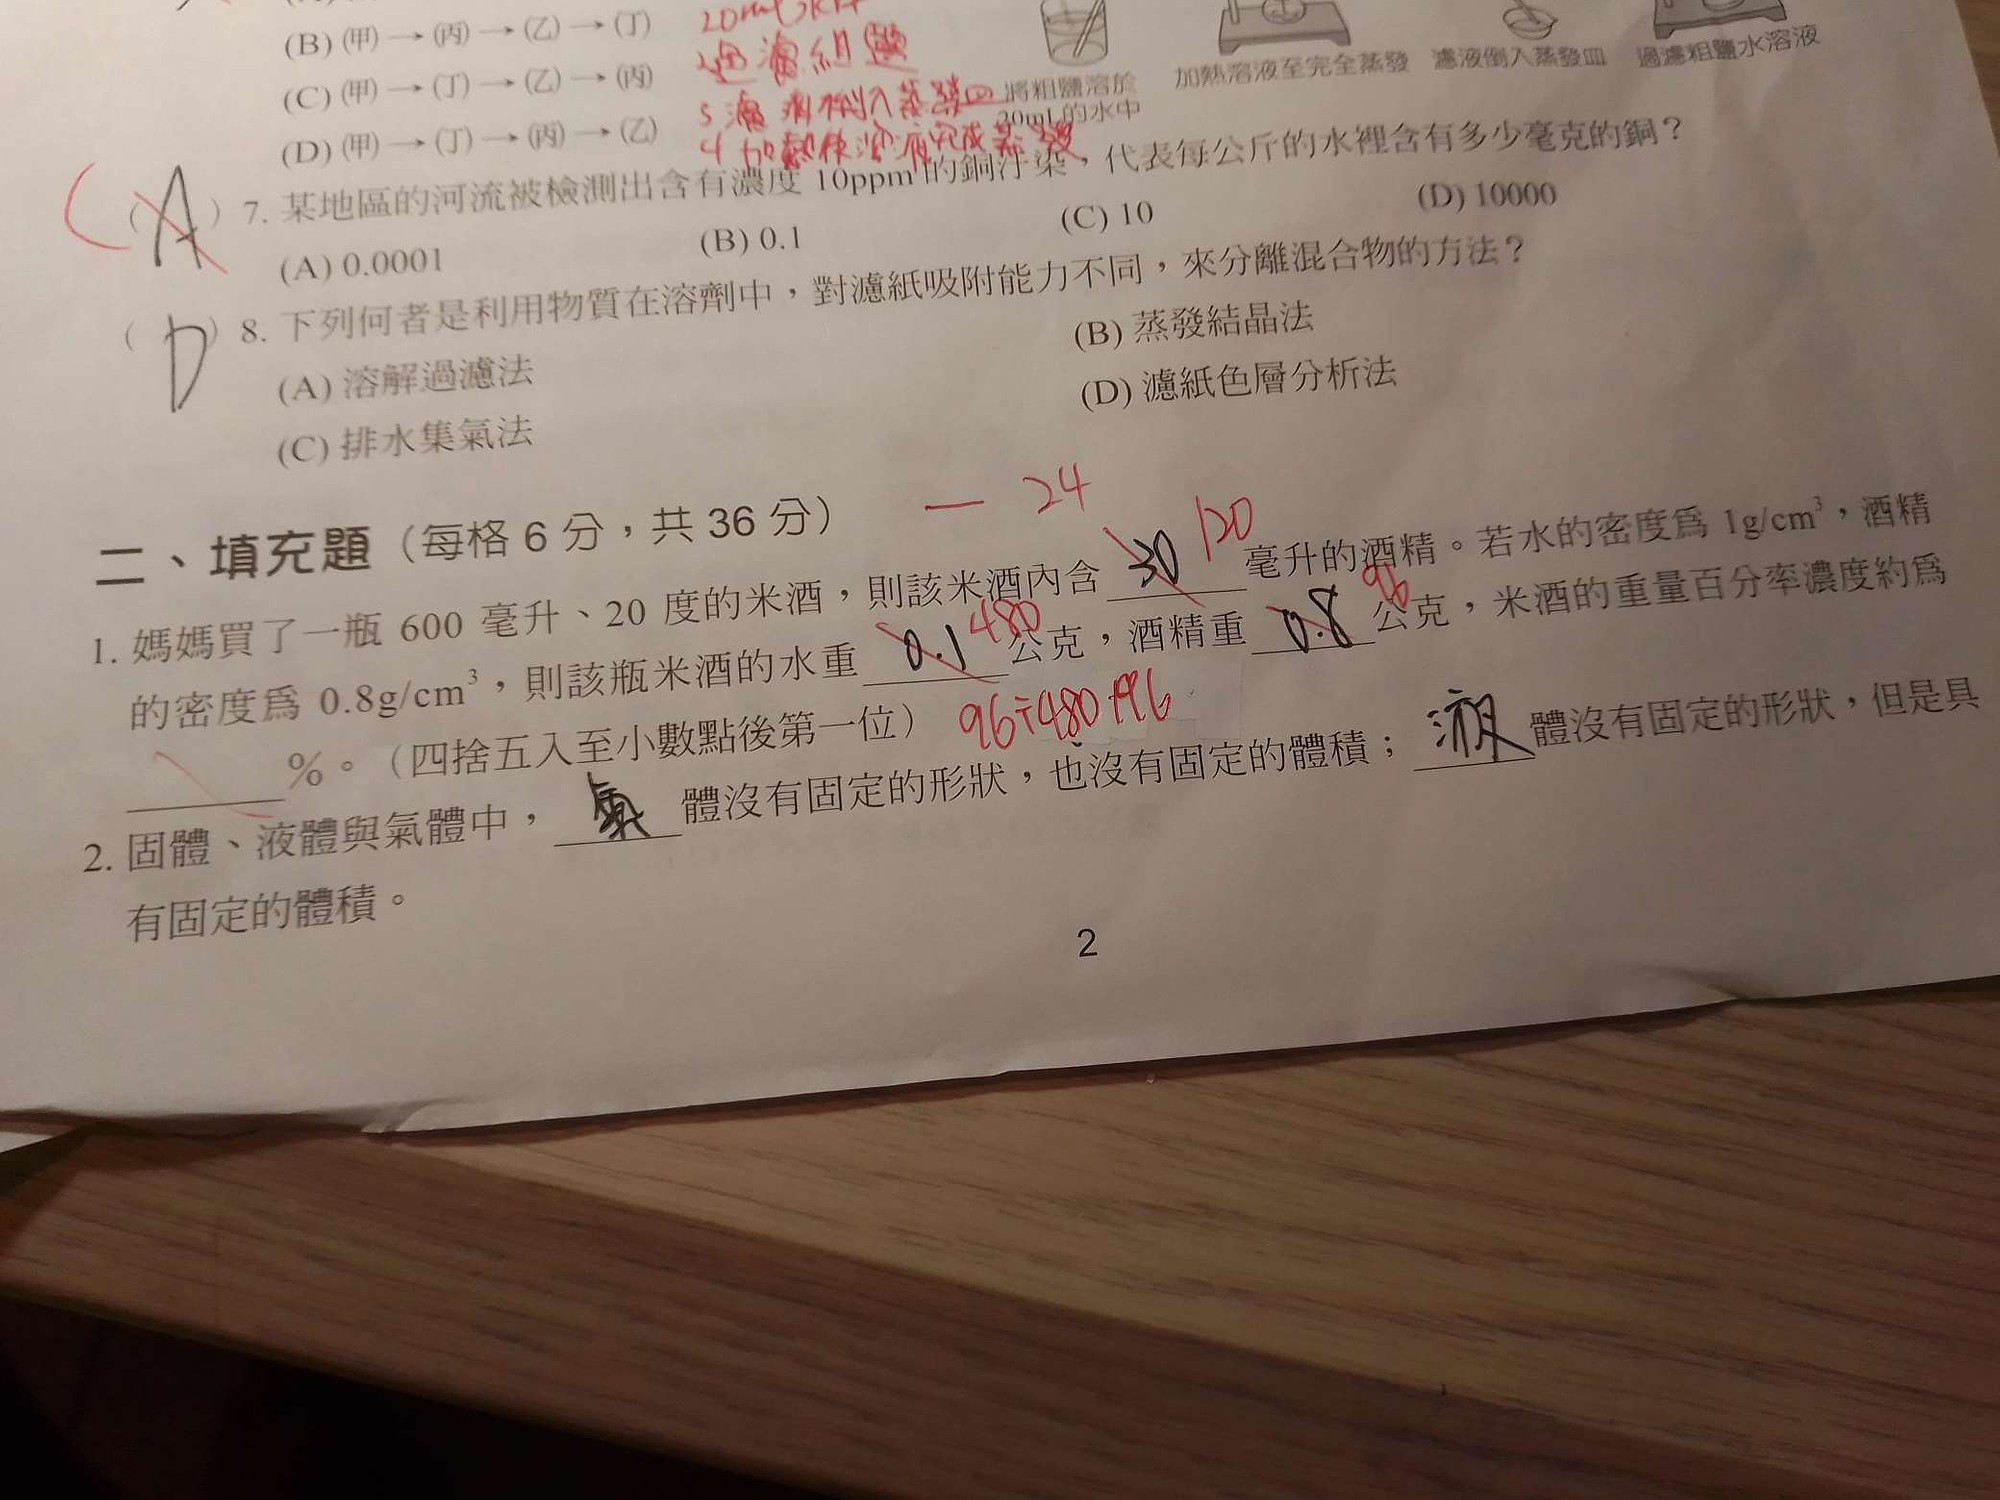 (B) (甲) → (丙) → (乙) → (丁)
(C) (甲) → (丁) → (乙) → (丙)
(D) (甲) → (丁) → (丙) → (乙)
過濾組鹽
將粗鹽溶於
20mL的水中
加熱溶液至完全蒸發
濾液倒入蒸發皿
過濾粗鹽水溶液
C
( A ) 7. 某地區的河流被檢測出含有濃度 10ppm 的銅汙染，代表每公斤的水裡含有多少毫克的銅？
(A) 0.0001 (B) 0.1 (C) 10 (D) 10000
( D ) 8. 下列何者是利用物質在溶劑中，對濾紙吸附能力不同，來分離混合物的方法？
(A) 溶解過濾法 (B) 蒸發結晶法
(C) 排水集氣法 (D) 濾紙色層分析法
二、填充題（每格 6 分，共 36 分） — 24
1. 媽媽買了一瓶 600 毫升、20 度的米酒，則該米酒內含 30 120 毫升的酒精。若水的密度為 1g/cm³，酒精
的密度為 0.8g/cm³，則該瓶米酒的水重 0.1 480 公克，酒精重 0.8 96 公克，米酒的重量百分率濃度約為
%。（四捨五入至小數點後第一位） 96÷480+96
2. 固體、液體與氣體中， 氣 體沒有固定的形狀，也沒有固定的體積； 液 體沒有固定的形狀，但是具
有固定的體積。
2